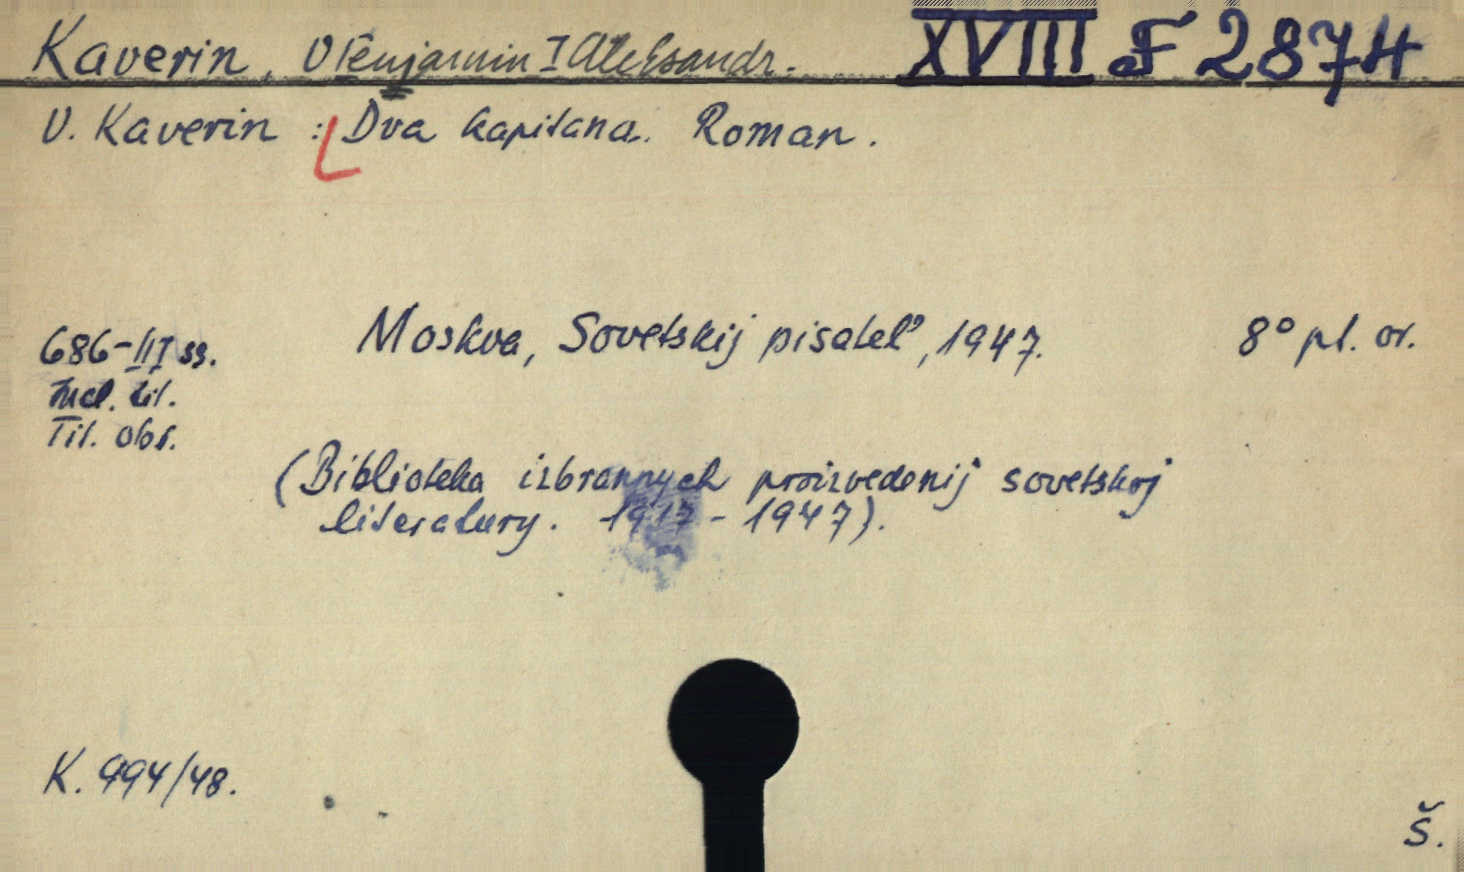 Kaverin, V|enjamin I Aleksandr. XVIII F 2874
V. Kaverin : Dva kapitana. Roman.
686-III ss.
Moskva, Sovetskij pisatel', 1947.
8° pl. or.
Incl. tit.
Tit. obs.
(Biblioteka izbrannych proizvedenij sovetskoj
literatury. 1917 - 1947).
K. 994/48.
Š.